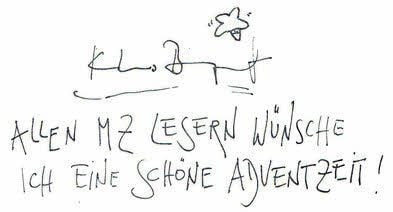 ALLEN MZ LESERN WÜNSCHE
ICH EINE SCHÖNE ADVENTZEIT!